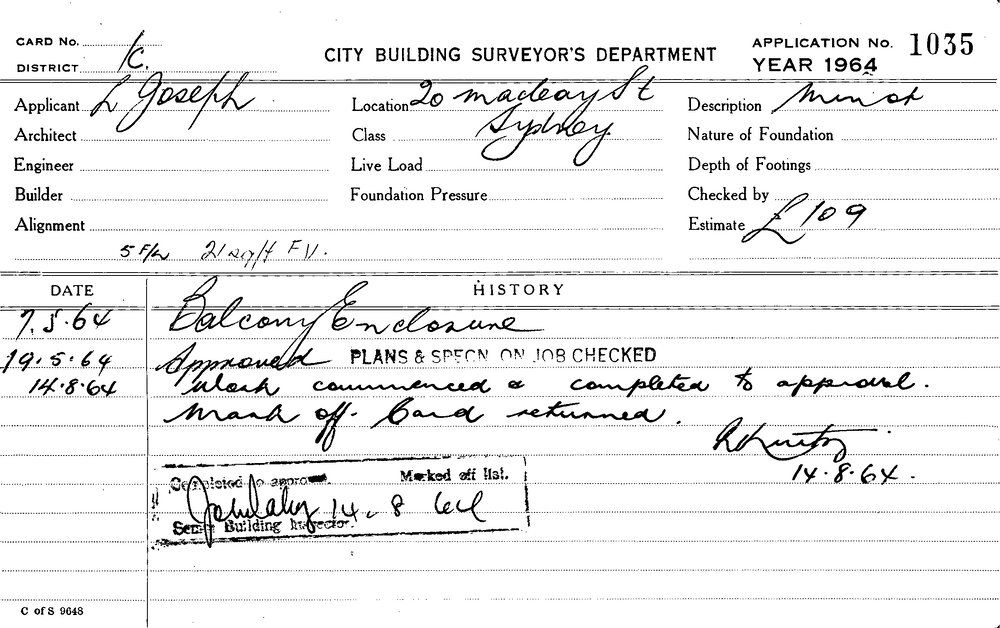 CARD No.
CITY BUILDING SURVEYOR'S DEPARTMENT
APPLICATION No. 1035
DISTRICT K.
YEAR 1964
Applicant L Joseph
Location 20 macleay St
Description Minor
Architect
Class Sydney
Nature of Foundation
Engineer
Live Load
Depth of Footings
Builder
Foundation Pressure
Checked by
Alignment
Estimate £109
5 F/L 21 sq/ft F.V.
DATE HISTORY
7.5.64 Balcony Enclosure
19.5.64 Approved PLANS & SPECN ON JOB CHECKED
14.8.64 Work commenced & completed to approval.
Mark off. Card returned.
14.8.64.
Completed to approval Marked off list.
14. 8 64
Senr Building Inspector.
C of S 9648